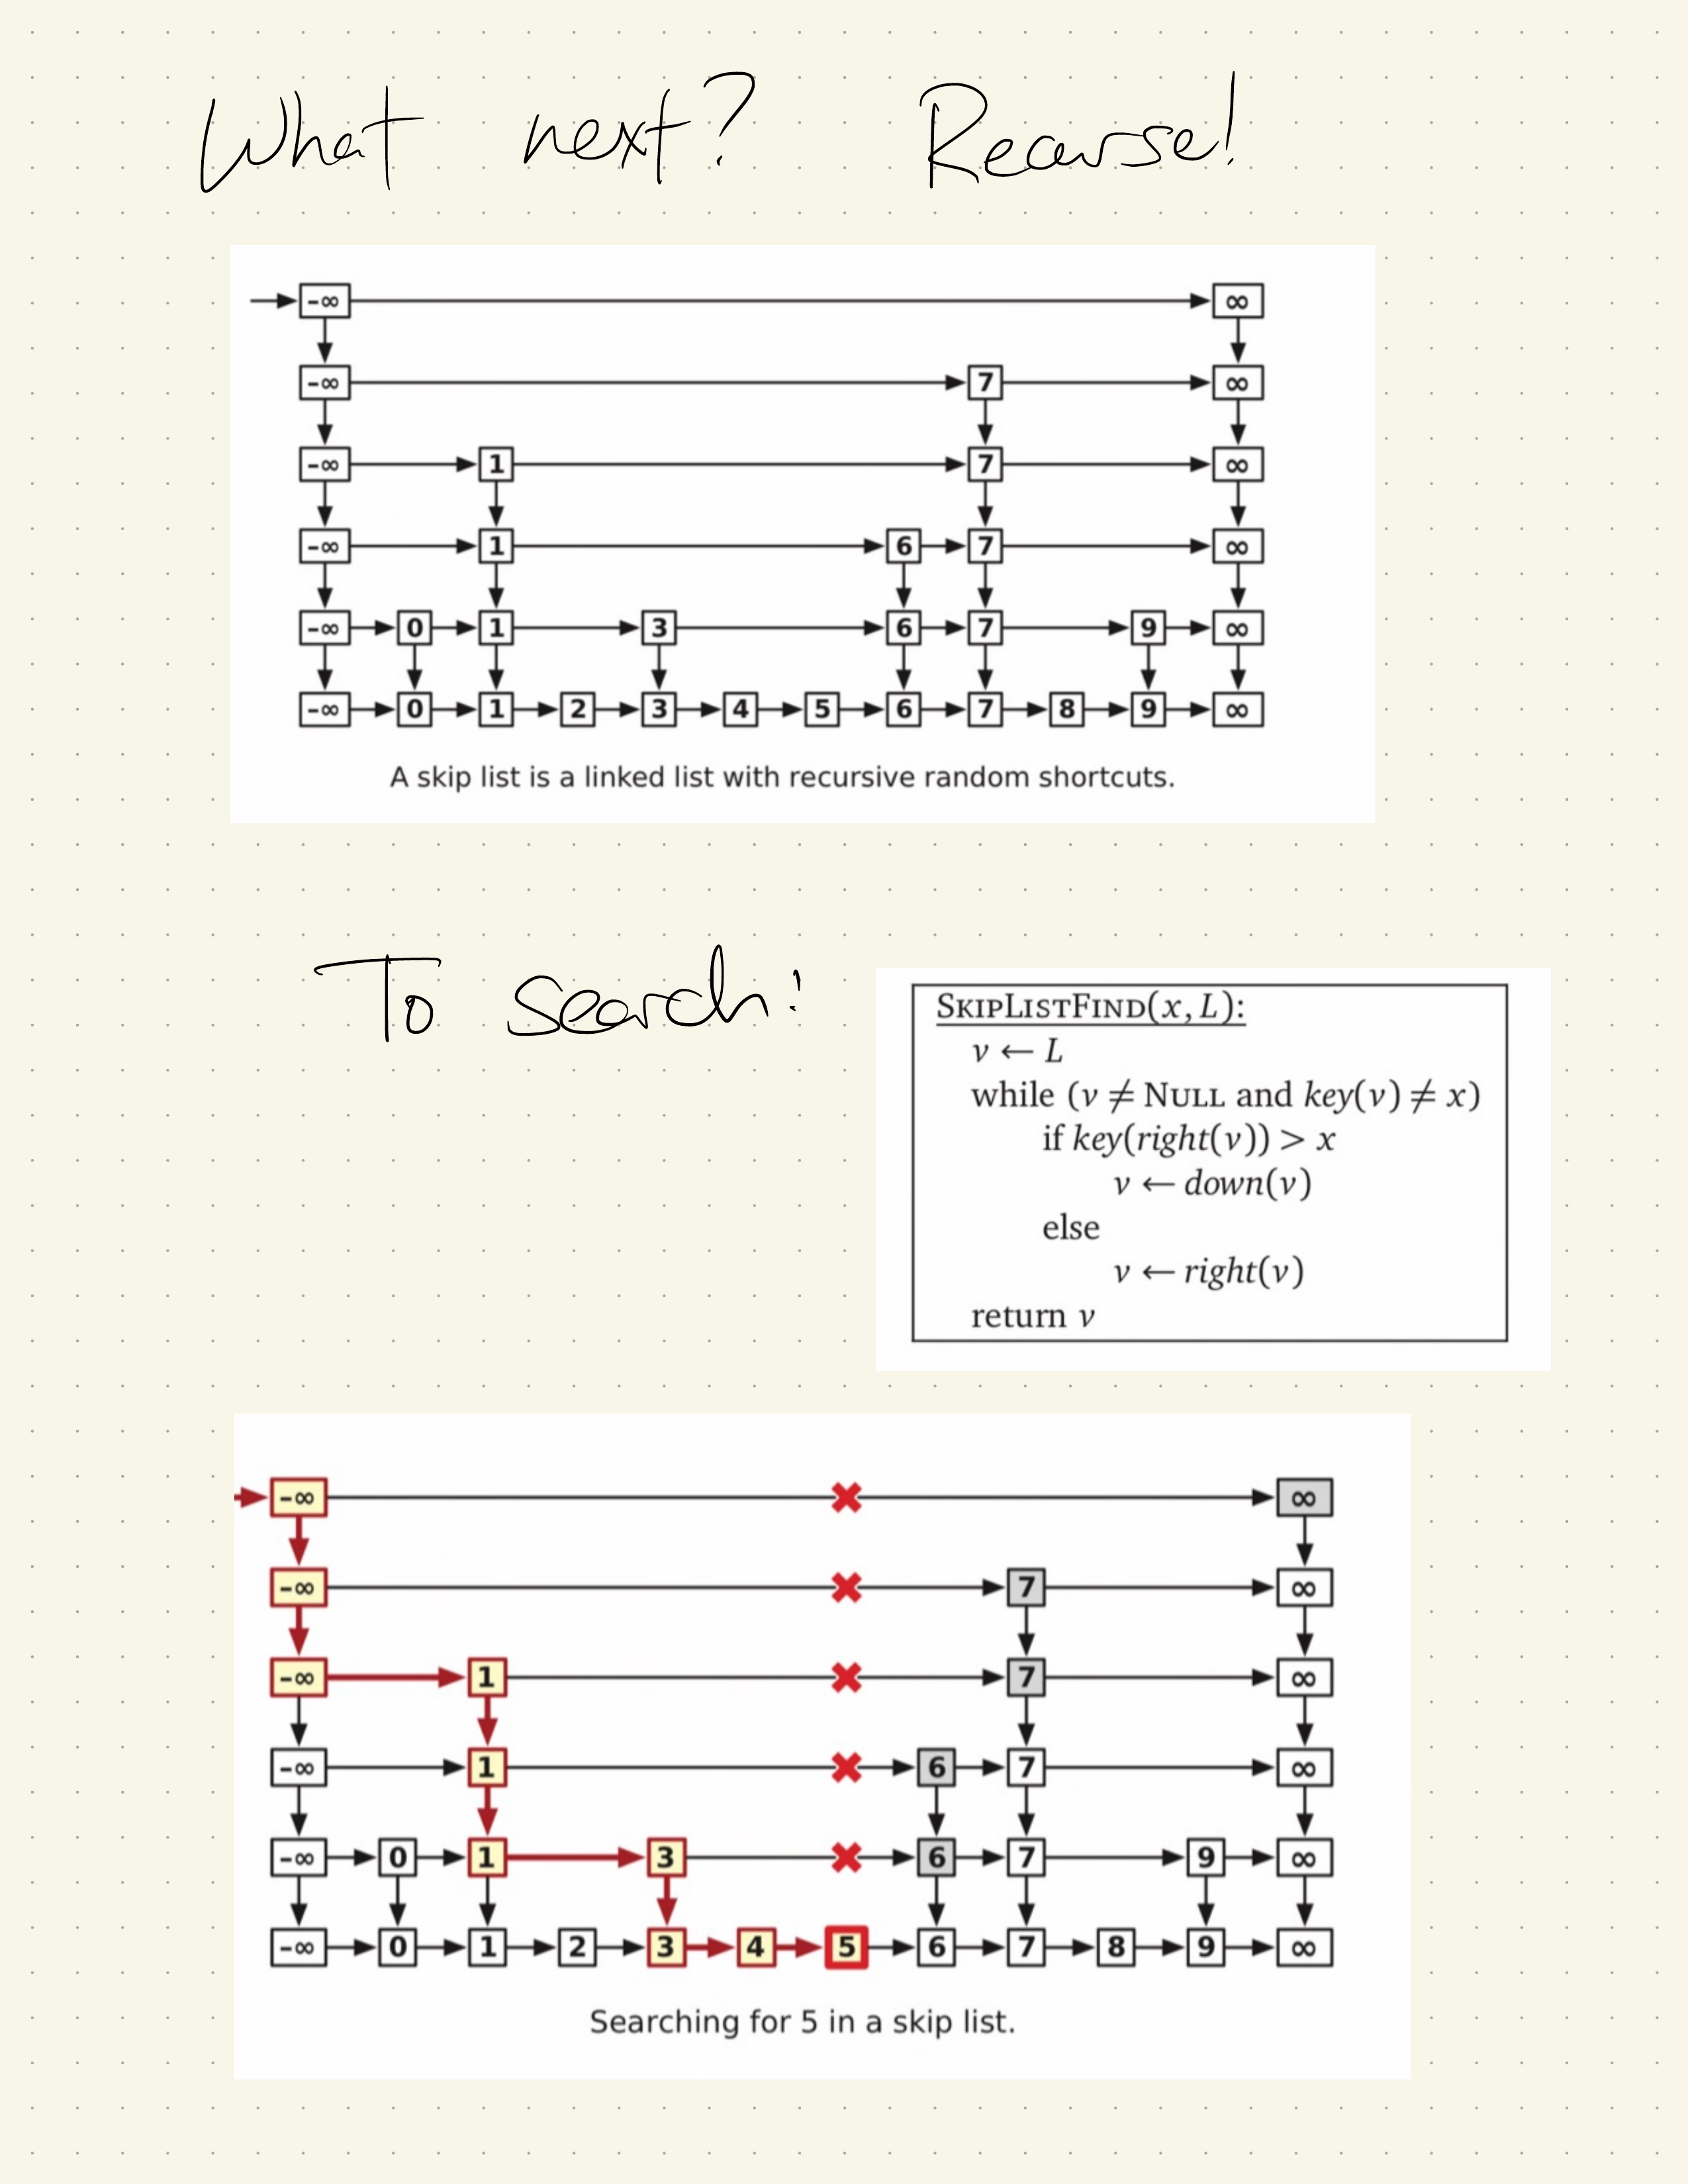 What next? Recurse!
–∞ ∞
–∞ 7 ∞
–∞ 1 7 ∞
–∞ 1 6 7 ∞
–∞ 0 1 3 6 7 9 ∞
–∞ 0 1 2 3 4 5 6 7 8 9 ∞
A skip list is a linked list with recursive random shortcuts.
To search:
SKIPLISTFIND(x, L):
v ← L
while (v ≠ NULL and key(v) ≠ x)
if key(right(v)) > x
v ← down(v)
else
v ← right(v)
return v
–∞ ∞
–∞ 7 ∞
–∞ 1 7 ∞
–∞ 1 6 7 ∞
–∞ 0 1 3 6 7 9 ∞
–∞ 0 1 2 3 4 5 6 7 8 9 ∞
Searching for 5 in a skip list.